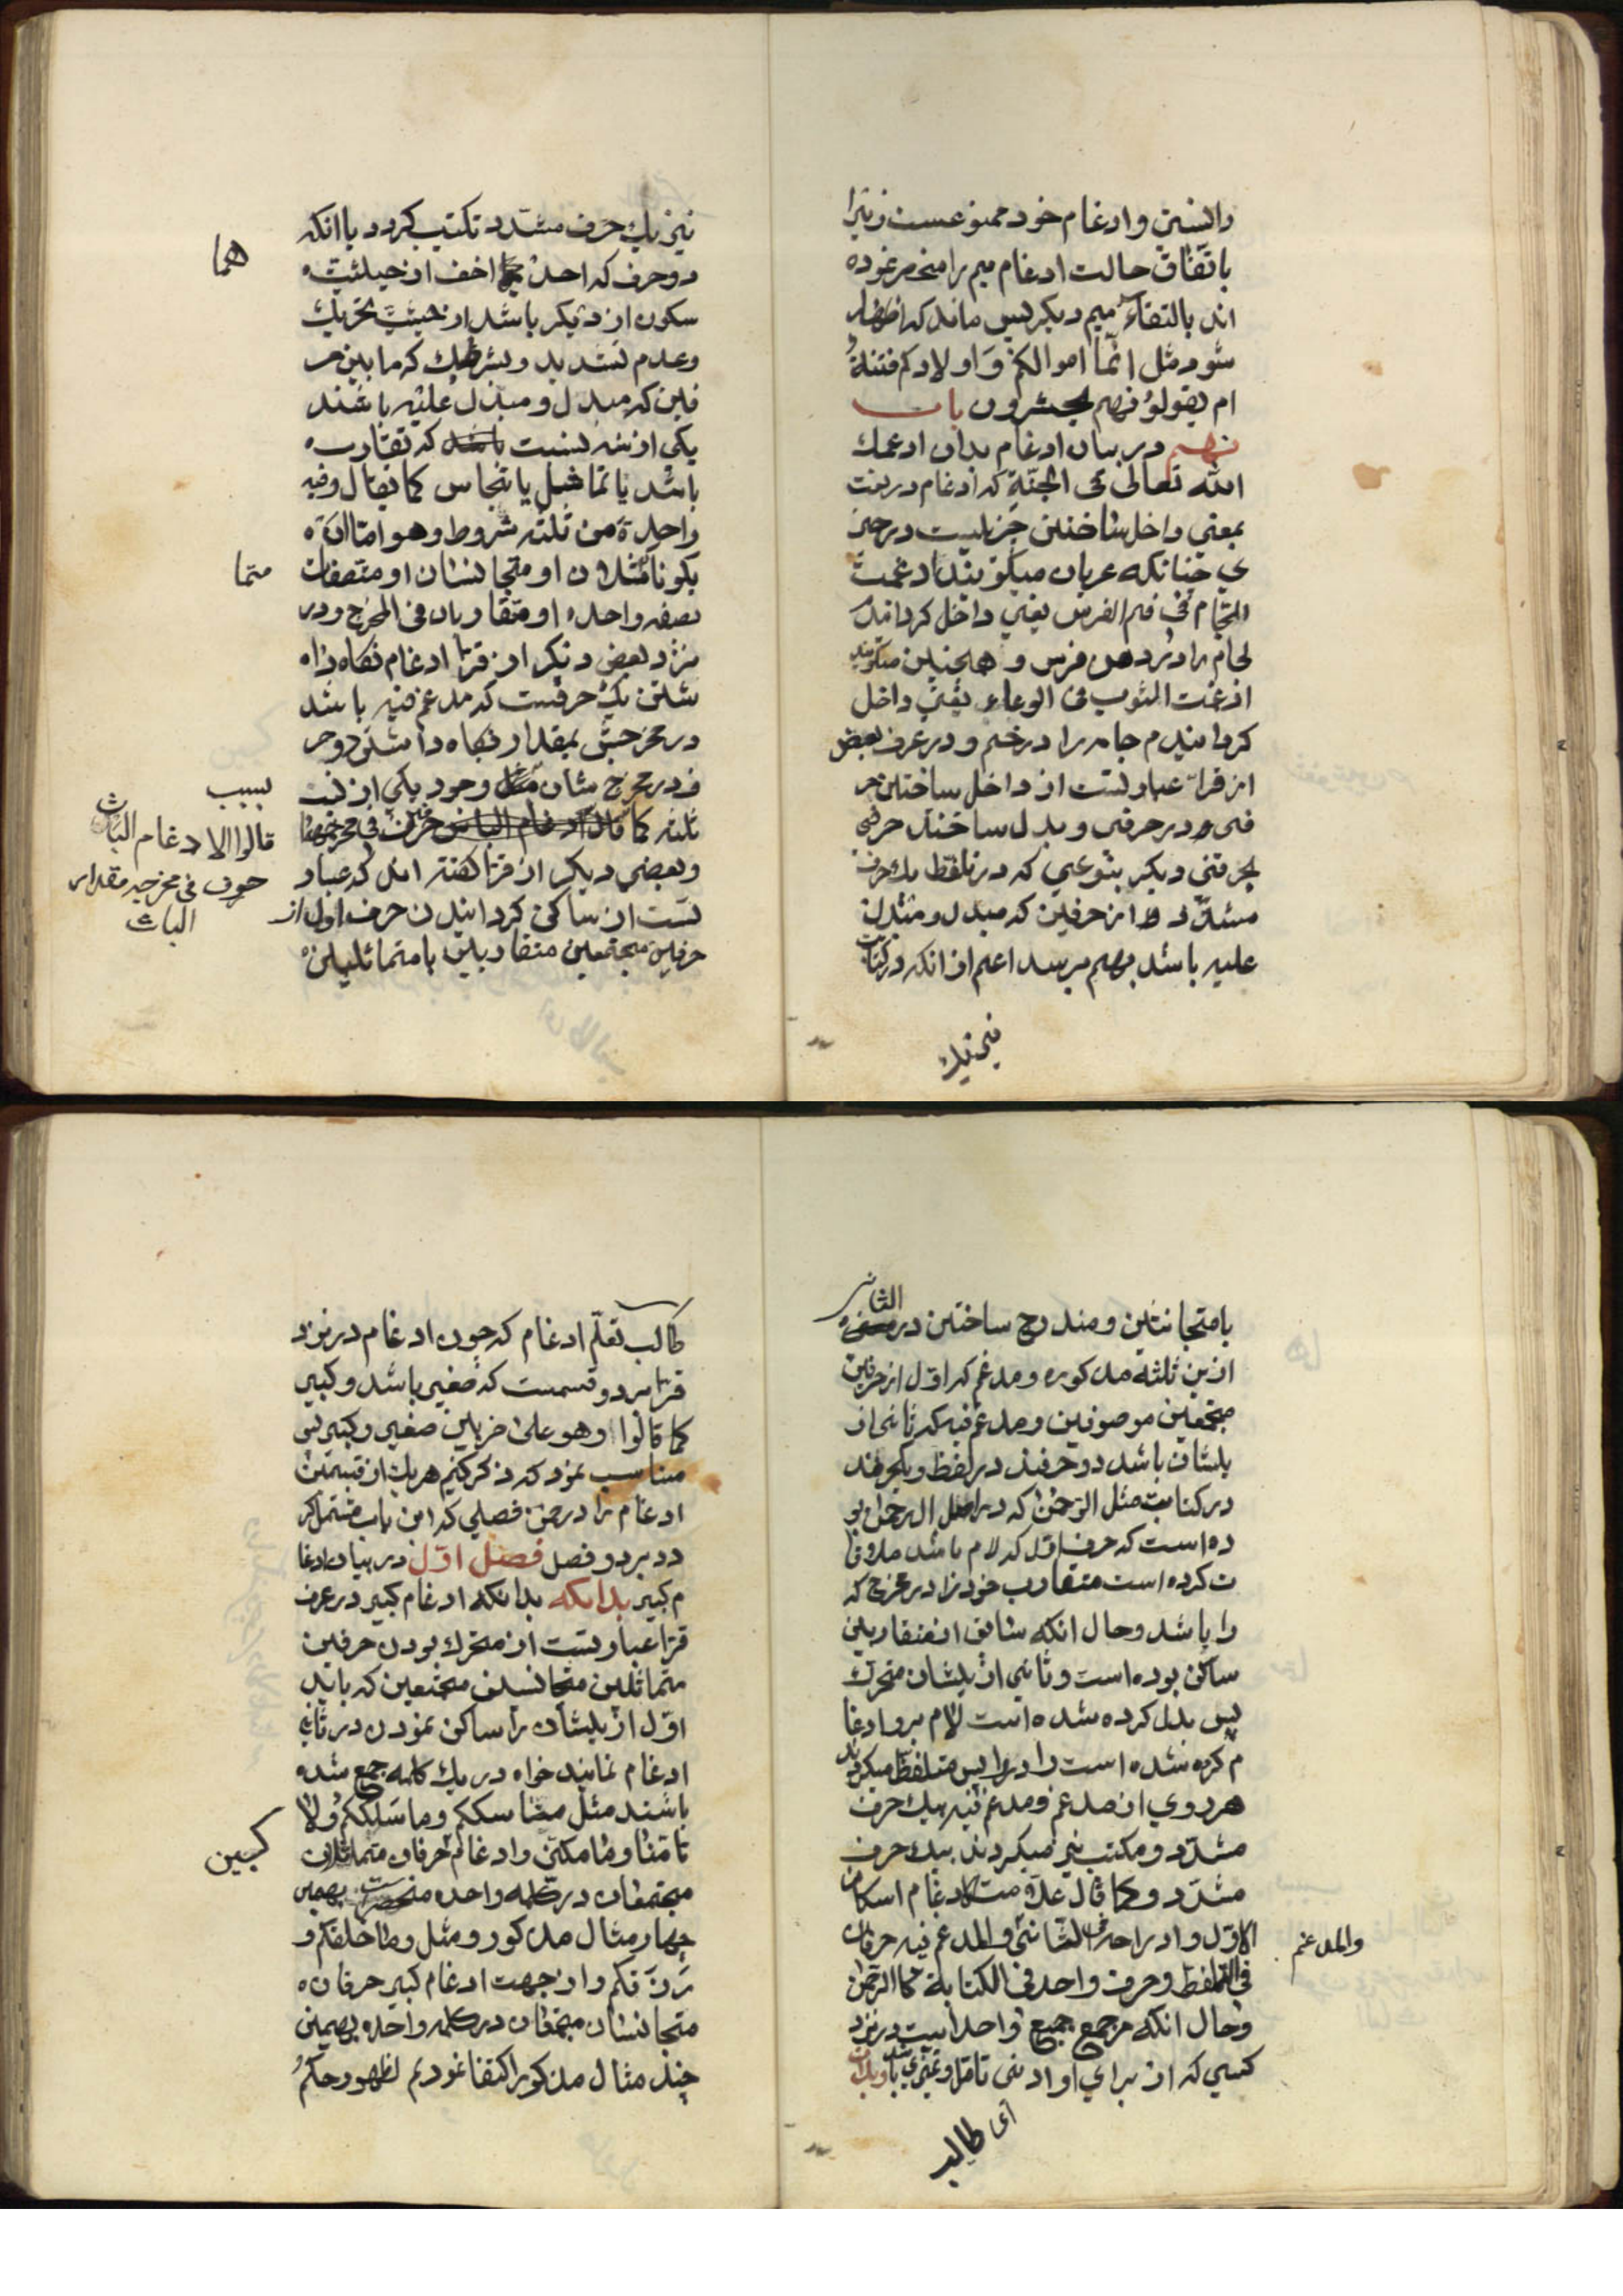 دانستن وادغام خود ممنوعست زیرا
باتفاق حالت ادغام میم را منحصر نموده
اند بالتقاء میم دیگر پس ماند که اظهار
شود مثل انما اموالکم وَاولادکم فتنةٌ
ام یقولوُ فهم لا یحشرون باب
نهم در بیان ادغام بدان ادغمک
الله تعالی فی الجنّة که ادغام در لغت
بمعنی داخل ساختن چزیست در چیز
ی چنانکه عربان میکویند ادغمت
اللجام فی فم الفرس یعنی داخل کردانیدم
لجام را در دهن فرس و همچنین میکویند
ادغمت الثوب فی الوعاء یعنی داخل
کردانیدم جامه را در خم و در عرف بعض
از قراء عبارتست از داخل ساختن حر
فی در حرفی و بدل ساختن حرفی
بحرفی دیکر بنوعی که در تلفظ یک حرف
مشدّد از حرفین که مبدل و مبدل
علیه باشد بهم برسد اعم از انکه در کتابت
نیز یک
نیز یک حرف مشدد تکتیب کردد یا انکه
دو حرف که احد اخف از حیثیت
هما
سکون از دیکر باشد از حیثیت تحریک
وعدم تشدید و بشرطیک که ما بین حر
فین که مبدل و مبدل علیه باشند
یکی از سه نسبت باشد که تقارب
باشد یا تماثل یا تجانس کما یقال وفیه
واحدة من ثلثه شروط وهو امّا انْ
یکونا مثلان او متجانسان او متصفات
متما
بصفه واحده او متقاربان فی المخرج ودر
نزد بعض دیکر از قرّا ادغام نکاه دا
شتن یک حرفست که مدغم فیه باشد
در مخرجش بمقدار نکاه داشتن دو حر
ف در مخرج شان وجود یکی از نسب
بسبب
ثلثه کما قال ادغام الباس حرف فی مخرجه
قالوا الادغام الباث
حرف فی مخرجه مقدار
الباث
وبعضی دیکر از قرّا کفته اند که عبار
تست از ساکن کردانیدن حرف اول از
حرفین مجتمعین متقاربین یا متماثلین
یا متجانسین ومندرج ساختن در الثانی
ازین ثلثه مذکوره و مدغم که اول از حرفین
مجتمعین موصوفین ومدغم فیه که ثانی از
یشان باشد دو حرفند در لفظ ویکحرفند
در کتابت مثل الرّحمن که در اصل الرحمن بو
ده است که حرف اول که لام باشد ملاقا
ت کرده است متقارب خود را در مخرج که
را باشد وحال انکه سابق از متقاربین
ساکن بوده است وثانی از یشان متحرک
پس بدل کرده شده است لام برا وادغا
م کرده شده است را در را پس متلفظ میکردند
هر دوی از مدغم ومدغم فیه بیک حرف
مشدّد و مکتب نیز میکردند بیک حرف
مشدّد و کما قال علامت الادغام اسکان
الاوّل وادراجه فی الثانی والمدغم فیه حرفان
والمدغم
فی التلفظ وحرف واحد فی الکتابة کما الرّحمن
وحال انکه مرجمع جمیع واحد است در نزد
کسی که از برای او ادنی تامل وتمیزی باشد وبدان
ای طالب
طالب تعلّم ادغام که چون ادغام در نزد
قرّا بر دو قسمست که صغیر باشد وکبیر
کما قالوا وهو علی ضربین صغیر وکبیر پس
مناسب نمود که ذکر کنیم هر یک از قسمین
ادغام را در ضمن فصلی که این باب مشتمل کر
دد بر دو فصل فصل اوّل در بیان ادغا
م کبیر بدانکه بدانکه ادغام کبیر در عرف
قرّا عبارتست از متحرک بودن حرفین
متماثلین متجانسین مجتمعین که باید
اوّل از یشان را ساکن نمودن در ثانی
ادغام نمایند خواه در یک کلمه جمع شده
باشند مثل مناسککم وما سَلککُم ولا
تامنّا وما مکنّی وادغام حرفان متماثلان
کبین
مجتمعان در کلمه واحده منحصرست بهمین
چهار مثال مذکور و مثل وما خلقکم و
رَزَقکم واز جهت ادغام کبیر حرفان
متجانسان مجتمعان در کلمه واحده بهمین
چند مثال مذکور اکتفا نمودیم لظهور حکم